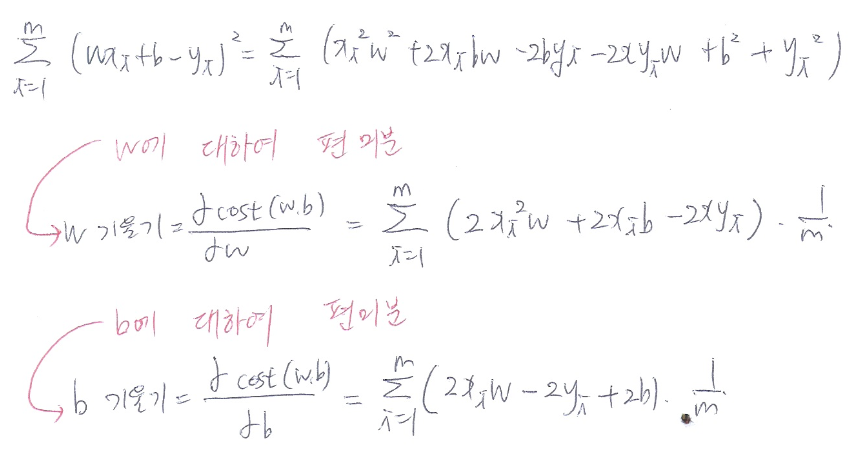 ∑_{i=1}^{m} (wx_i+b-y_i)² = ∑_{i=1}^{m} (x_i²w² +2x_ibw -2by_i -2xy_iw +b² + y_i²)
w에 대하여 편미분
w 기울기 = ∂cost(w,b)/∂w = ∑_{i=1}^{m} (2x_i²w +2x_ib -2xy_i) · 1/m
b에 대하여 편미분
b 기울기 = ∂cost(w,b)/∂b = ∑_{i=1}^{m} (2x_iw -2y_i +2b) · 1/m